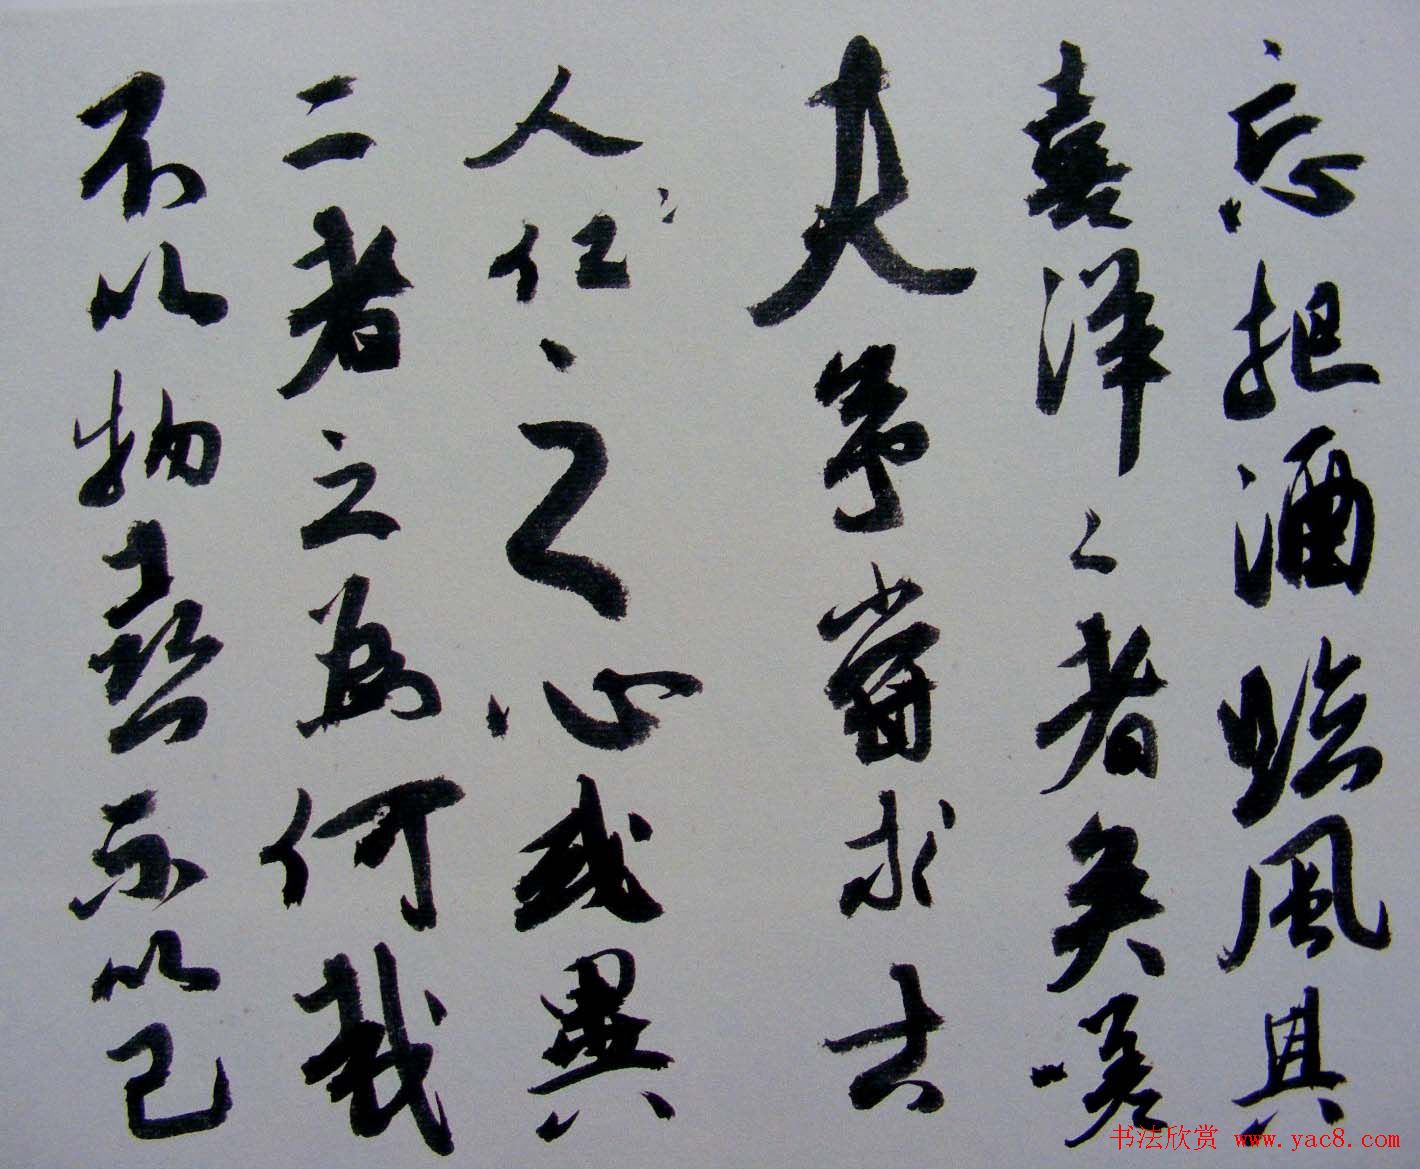 忘把酒臨風其
喜洋〻者矣嗟
夫予嘗求古
仁人之心或異
二者之為何哉
不以物喜不以己
书法欣赏 www.yac8.com